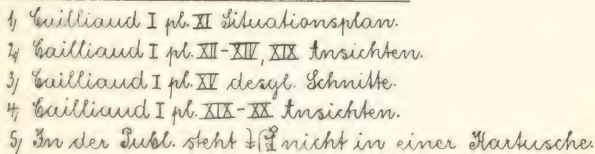 1, Cailliaud I pl. XI Situationsplan.
2, Cailliaud I pl. XII-XIV, XIX Ansichten.
3, Cailliaud I pl. XV desgl. Schnitte.
4, Cailliaud I pl. XIX-XX Ansichten.
5, In der Publ. steht nicht in einer Kartusche.